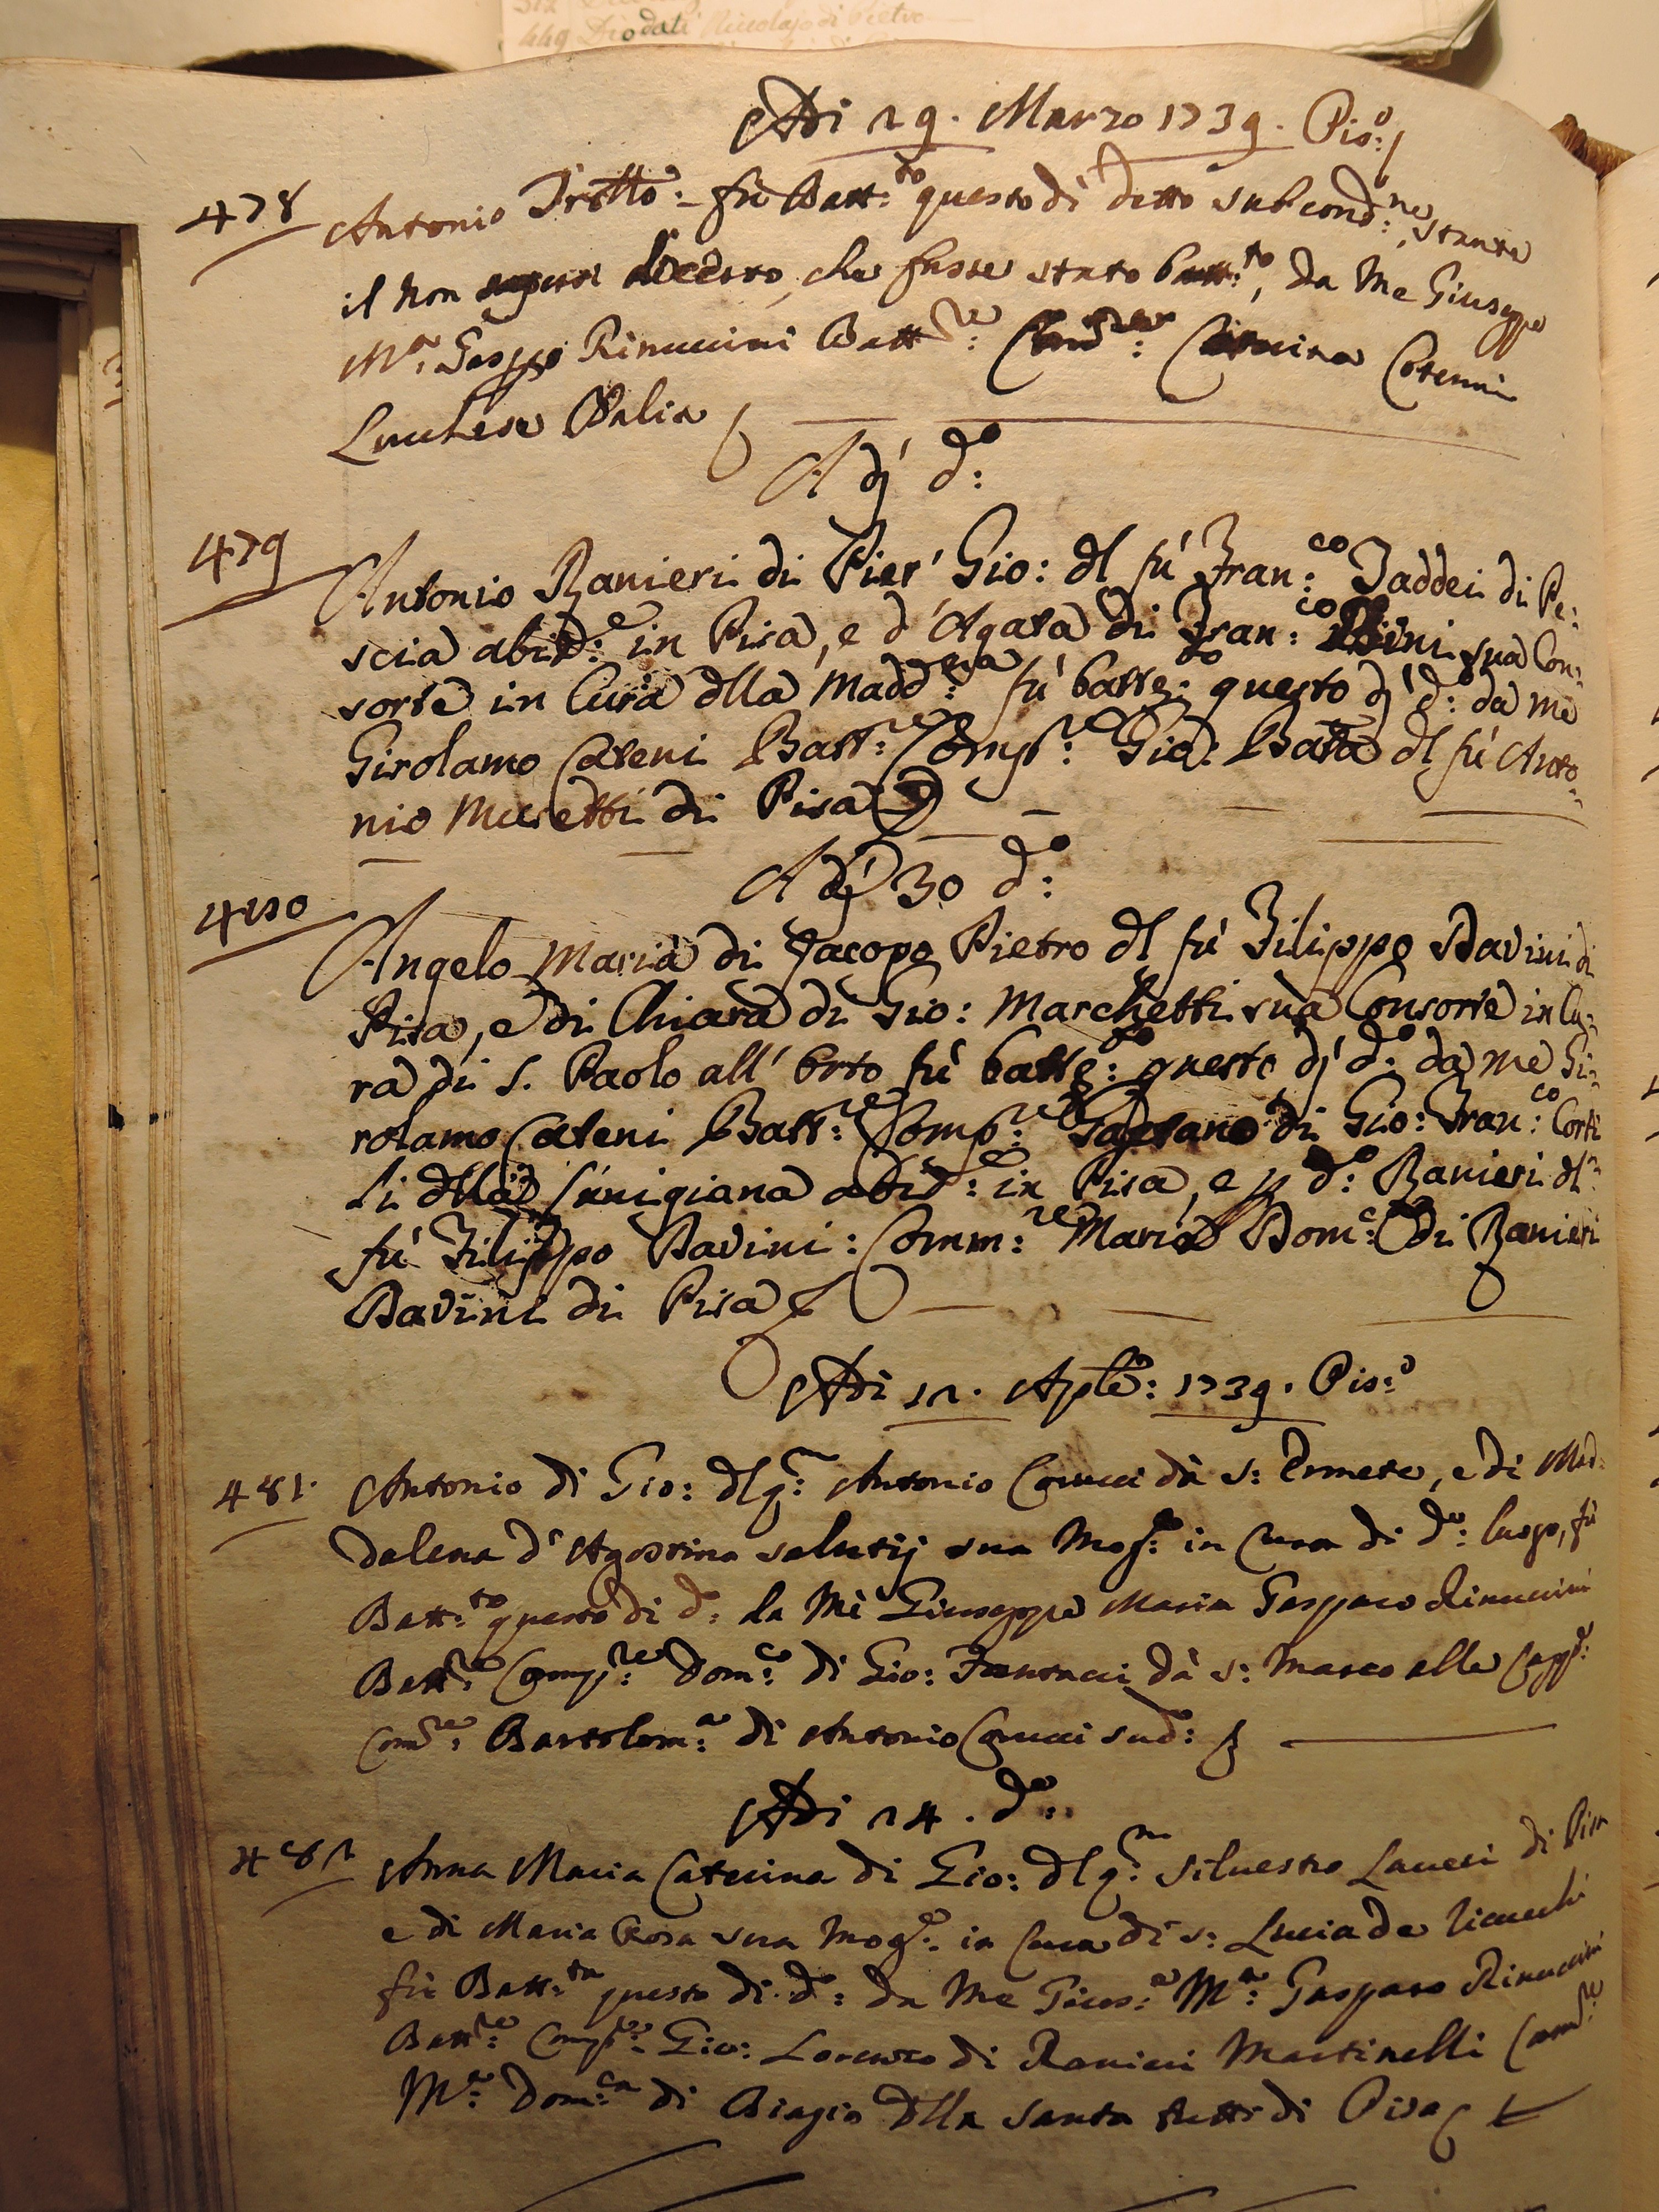 449 Diodati Niccolajo di Pietro
Adi 29. Marzo 1739. Pis:º
478 Antonio Tritto: fù Batt:to questo dì detto sub cond:ne, stante
il non sapersi di certo, che fusse stato batt:to, da Me Giuseppe
M:a Gasp:o Rinuccini Batt:re Com:re Caterina
Lucchese Balia
A dj d:º
479 Antonio Ranieri di Pier' Gio: dl fù Fran:co Taddei di Pe:
scia abit:e in Pisa, e d'Agata di Fran:co sua Con:
sorte in Cura dlla Madd:na fù battez:to questo dj d:º da me
Girolamo Cateni Batt:re Comp:re Gio: Batta dl fù Anto:
nio Musetti di Pisa
A dj 30 d:º
480 Angelo Maria di Jacopo Pietro dl fù Filippo Bavini di
Pisa, e di Chiara di Gio: Marchetti sua Consorte in Cu:
ra di S. Paolo all' Orto fù battez:to questo dj d:º da me Gi:
rolamo Cateni Batt:re Comp:re Gaetano di Gio: Fran:co Corti
li dlla Lunigiana abit:e in Pisa, e p d:º Ranieri dl
fù Filippo Bavini: Comm:re Maria Dom:ca di Ranieri
Bavini di Pisa
Adi 12. Aple: 1739. Pis:º
481. Antonio di Gio: dl q:m Antonio Carucci dà S: Ermete, e di Mad:
dalena d'Agostino salutij sua Mog:e in Cura di d:º luogo, fù
Batt:to questo di d:º da Me Giuseppe Maria Gasparo Rinuccini
Batt:re Comp:re Dom:co di Gio: Fantacci dà S: Marco alle Capp:e
Com:re Bartolom:a di Antonio Carucci sud:º
Adi 14. d:º
482 Anna Maria Caterina di Gio: dl q:m Silvestro Laucci di Pisa
e di Maria Rosa sua Mog:e in Cura di S: Lucia de Ricucchi
fù Batt:ta questo di d:º da Me Gius:e M:a Gasparo Rinuccini
Batt:re Comp:re Gio: Lorenzo di Ranieri Martinelli Com:re
M:a Dom:ca di Biagio dlla Santa tutti di Pisa